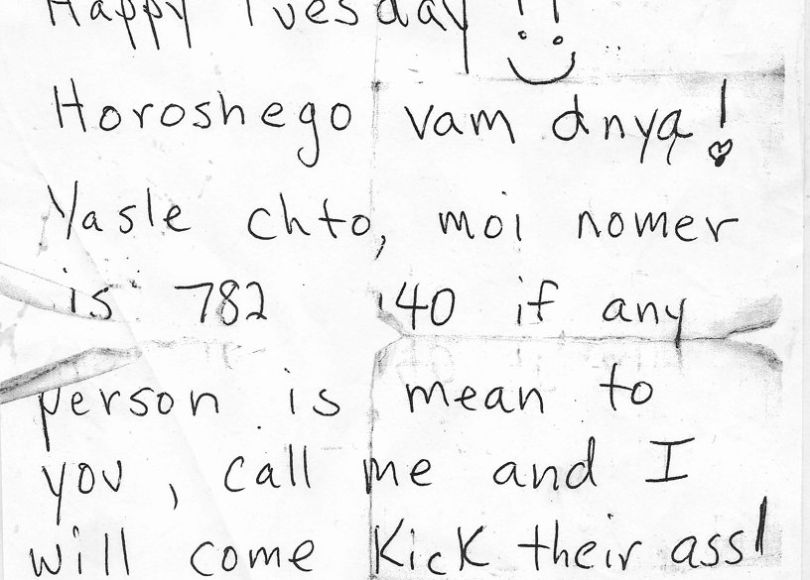 Happy Tuesday !!
Horoshego vam dnya!
Yasle chto, moi nomer
is 782 140 if any
person is mean to
you, call me and I
will come kick their ass!